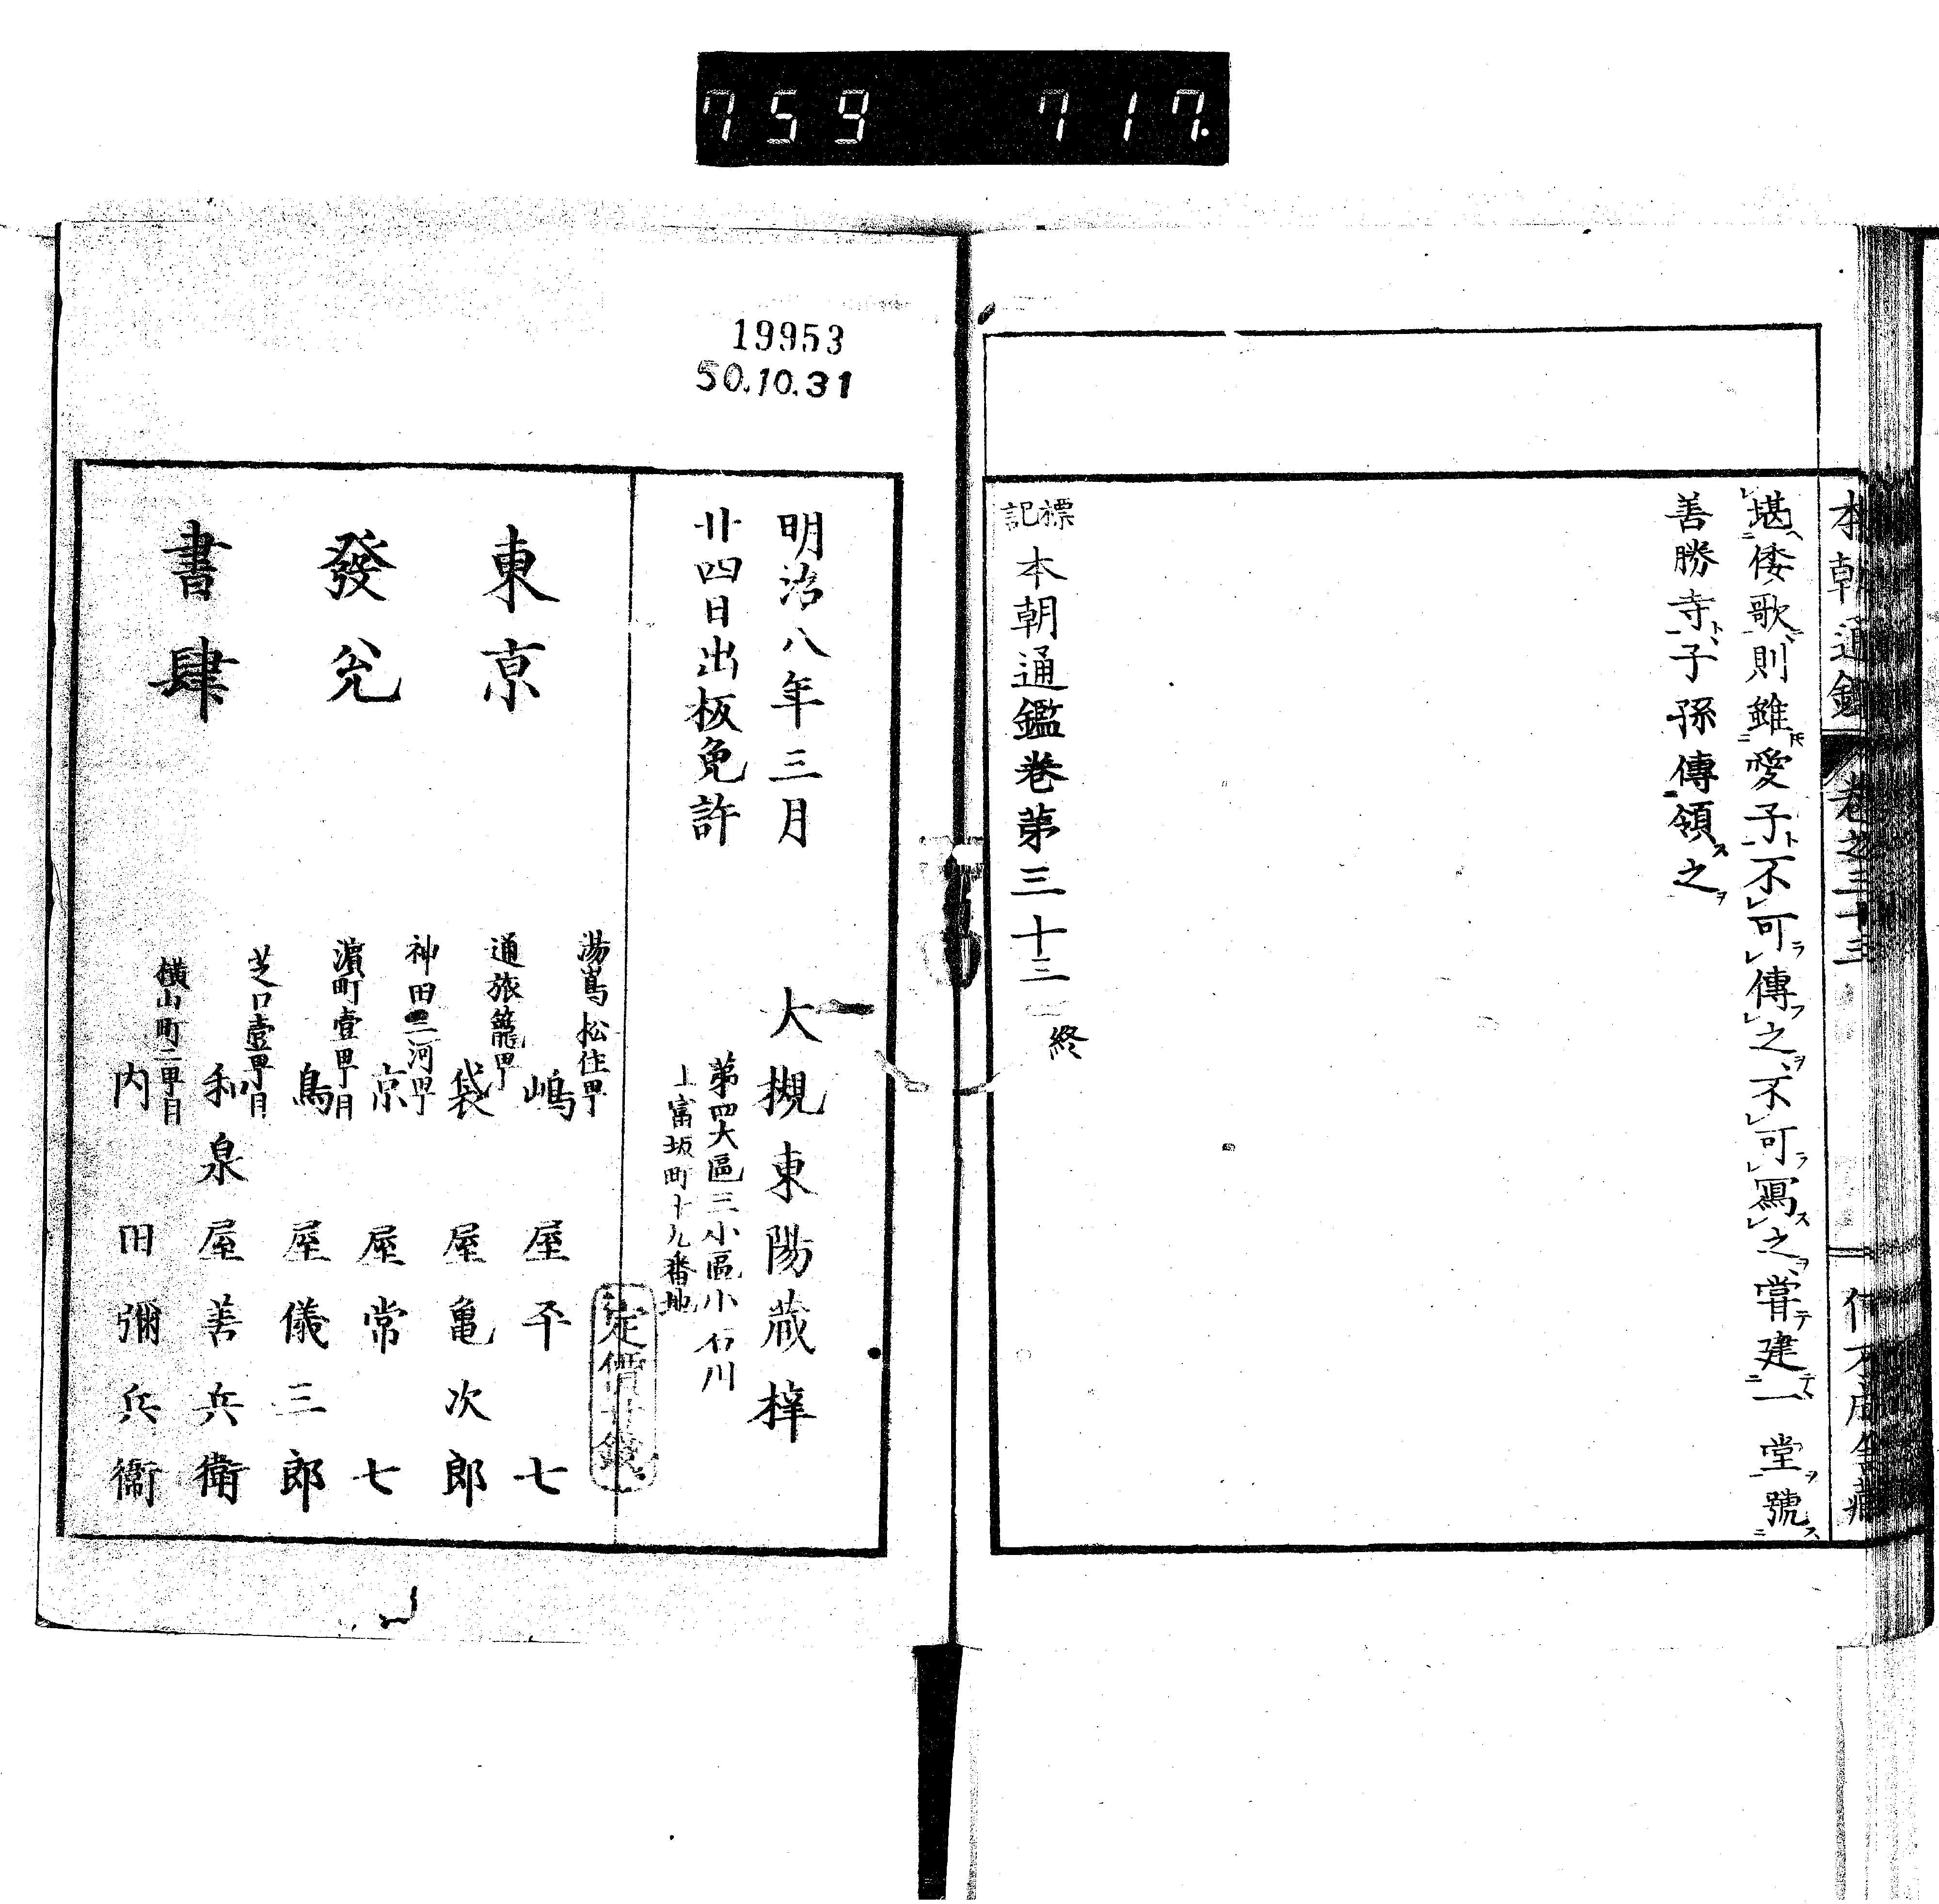 759 717.
本朝通鑑 卷之三十三
堪倭歌則雖愛子不可傳之不可寫之甞建一堂號
善勝寺子孫傳領之
標記 本朝通鑑卷第三十三 終
19953
50.10.31
明治八年三月
廿四日出板免許
大槻東陽蔵梓
第四大區三小區小石川
上富坂町十九番地
定價
東京
發兌
書肆
湯嶌松住甼
嶋屋平七
通旅籠甼
袋屋亀次郎
神田三河甼
京屋常七
濵町壹甼目
鳥屋儀三郎
芝口壹甼目
和泉屋善兵衛
横山町二甼目
内田彌兵衞